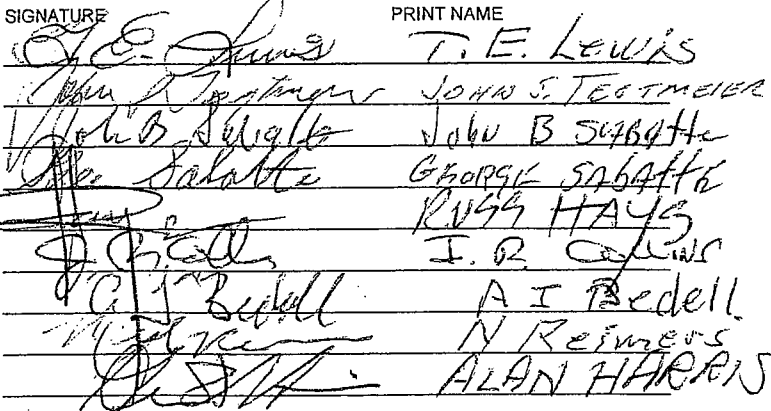 SIGNATURE PRINT NAME
T. E. Lewis T. E. LEWIS
John S. Testmeier JOHN S. TESTMEIER
John B Sabatte John B SABATTE
Geo Sabatte GEORGE SABATTE
RUSS HAYS
I. R. Collins I. R. Collins
A I Bedell A I Bedell
N Reimers N Reimers
ALAN HARRIS